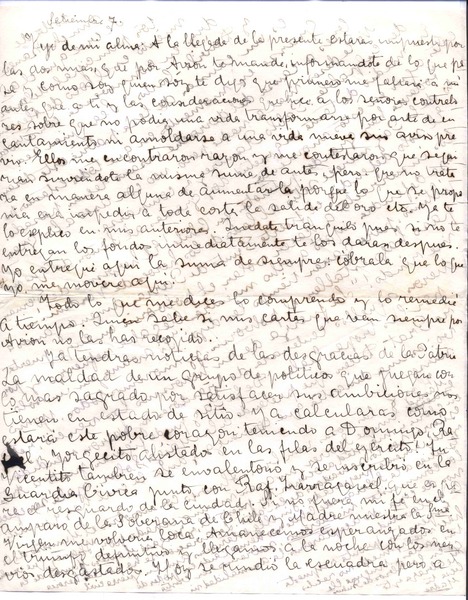 Setiembre 7.
de mi alma: A la llegada de la presente estarás impuesta por
las dos mias, que por Avion te mandé, informandote de lo que pa-
sa y como soy quien soy te dijo que primero me
antes que a ti y las consideraciones que hice a los señores contralo-
res sobre que no podia una vida transformarse por arte de en-
cantamiento ni amoldarse a una vida nueva sin aviso pre-
vio. Ellos me encontraron razon y me contestaron que segui-
rian sirviendote la misma suma de antes, pero que no trata-
ra en manera alguna de aumentarla porque lo que se propo-
nia era impedir a toda costa la salida del oro etc. Ya te
lo esplico en mis anteriores. Quedate tranquila pues si no te
entregan los fondos inmediatamente te los daran despues.
Yo entregué aqui la suma de siempre: cobrala que lo que
yo, me moveré aqui.
Todo lo que me dices lo comprendo y lo remedié
a tiempo. Quien sabe si mis cartas que van siempre por
Avion no las has recojido.
Ya tendras noticias de las desgracias de la Patria
La maldad de un grupo de politicos que juegan con
lo mas sagrado por satisfacer sus ambiciones nos
tienen en estado de sitio. Ya calcularas como
estará este pobre corazon teniendo a Domingo, Ra-
y Jorgecito alistado en las filas del ejército!
centito tambien se envalentonó y se inscribió en la
Guardia Civica junto con Raf. Larrazaval, que es pa-
ra el resguardo de la ciudad. Si no fuera mi fe en el
amparo de la Soberana de Chile y Madre nuestra la
Virjen me volveria loca. Amanecemos esperanzados en
el triunfo definitivo y llegamos a la noche con los ner-
vios desgastados. Hoy se rindió la escuadra pero a